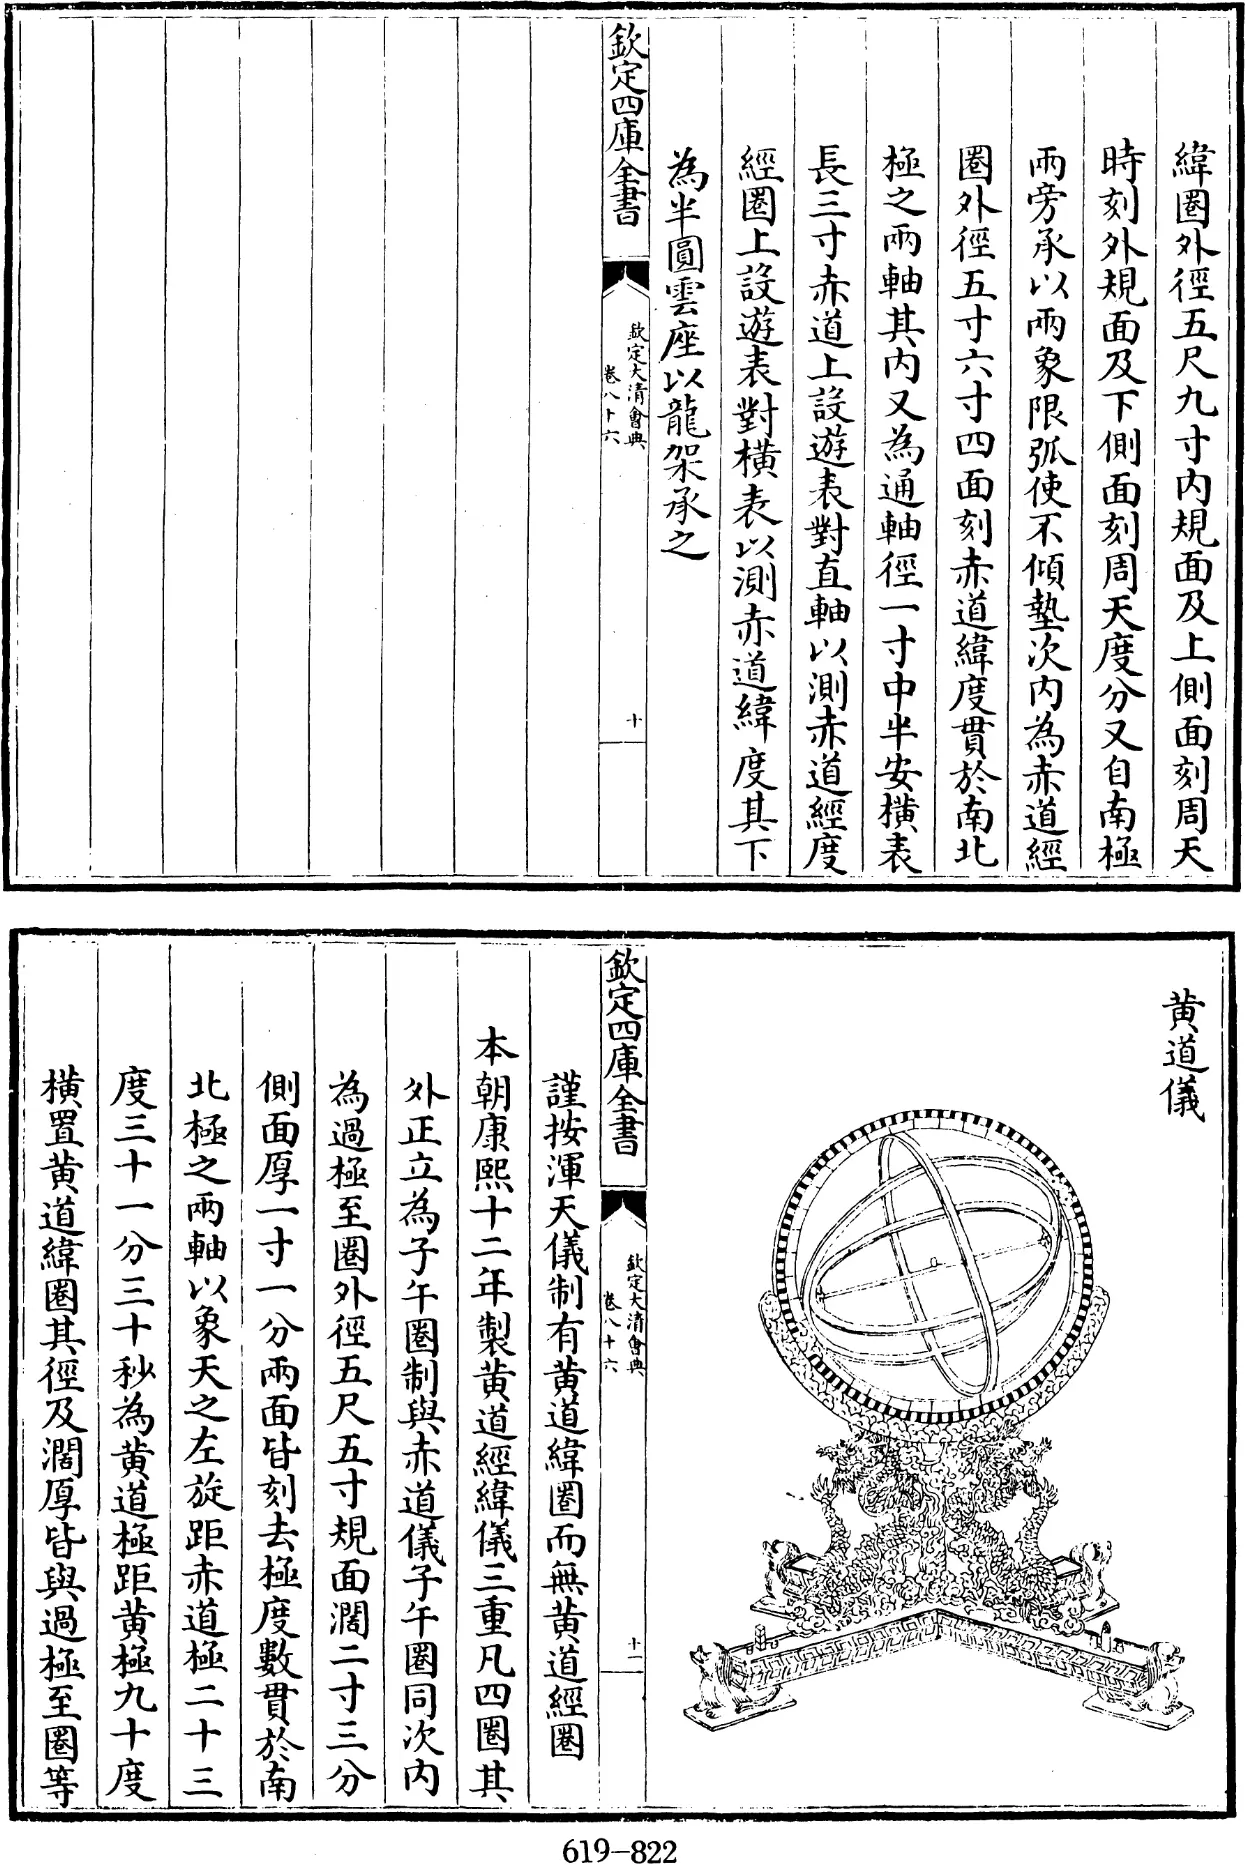 緯圈外徑五尺九寸内規面及上側面刻周天
時刻外規面及下側面刻周天度分又自南極
兩旁承以兩象限弧使不傾墊次内為赤道經
圈外徑五寸六寸四面刻赤道緯度貫於南北
極之兩軸其内又為通軸徑一寸中半安横表
長三寸赤道上設遊表對直軸以測赤道經度
經圈上設遊表對横表以測赤道緯度其下
為半圓雲座以龍架承之
欽定四庫全書
欽定大清會典
卷八十六
十
黄道儀
欽定四庫全書
欽定大清會典
卷八十六
十一
謹按渾天儀制有黄道緯圈而無黄道經圈
本朝康熙十二年製黄道經緯儀三重凡四圈其
外正立為子午圈制與赤道儀子午圈同次内
為過極至圈外徑五尺五寸規面濶二寸三分
側面厚一寸一分兩面皆刻去極度數貫於南
北極之兩軸以象天之左旋距赤道極二十三
度三十一分三十秒為黄道極距黄極九十度
横置黄道緯圈其徑及濶厚皆與過極至圈等
619-822